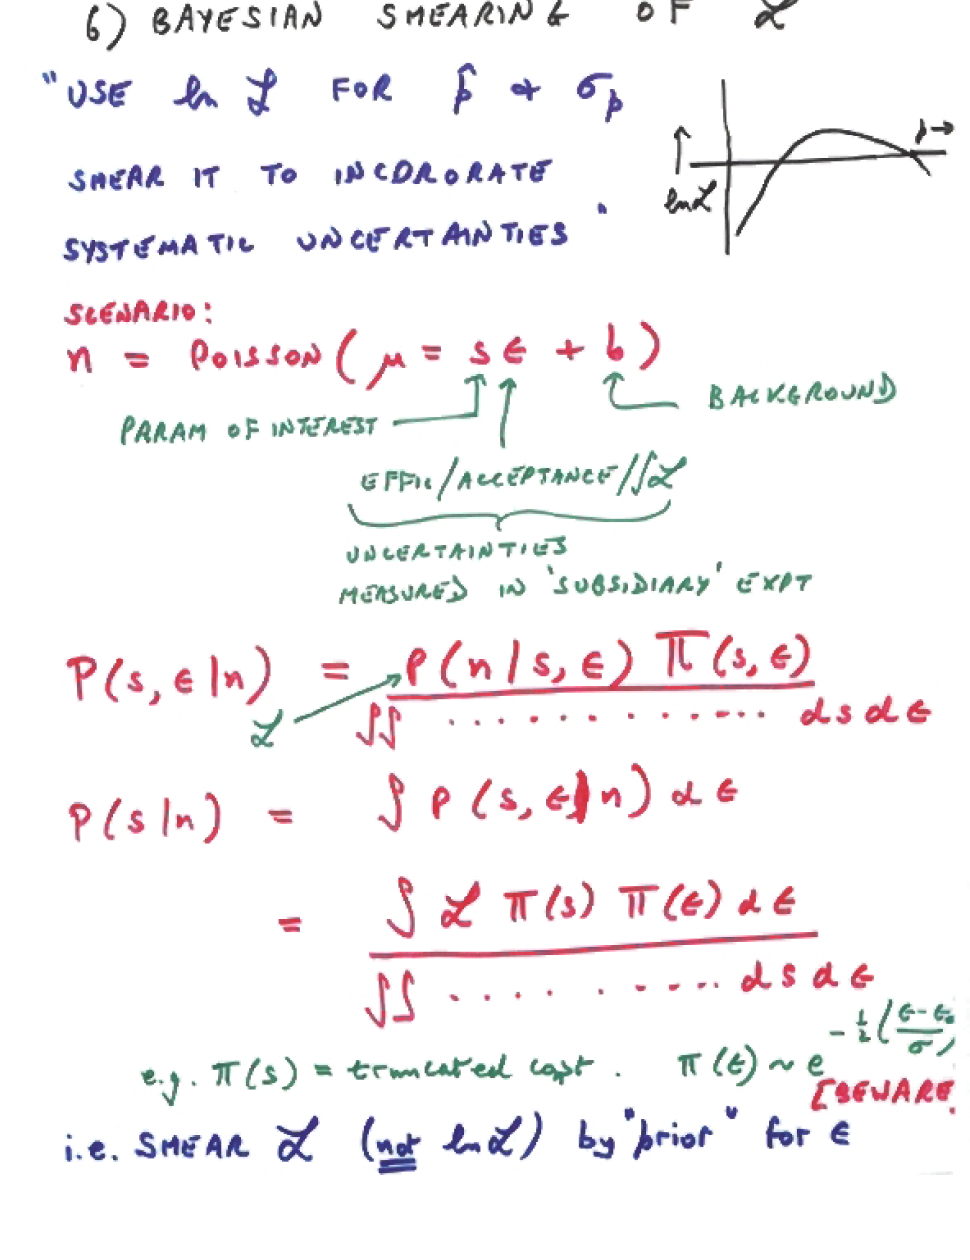 6) BAYESIAN SMEARING OF ℒ
"USE ln ℒ FOR p̂ + σp
p →
SMEAR IT TO INCORPORATE
ln ℒ
SYSTEMATIC UNCERTAINTIES "
SCENARIO:
n = POISSON (μ = sϵ + b)
BACKGROUND
PARAM OF INTEREST
EFFIC/ACCEPTANCE//∫ℒ
UNCERTAINTIES
MEASURED IN 'SUBSIDIARY' EXPT
P(s, ϵ|n) = P(n|s, ϵ) Π(s, ϵ)
ℒ
∫∫ ............. ds dϵ
P(s|n) = ∫ P(s, ϵ|n) dϵ
= ∫ ℒ Π(s) Π(ϵ) dϵ
∫∫ ........ ds dϵ
e.g. Π(s) = truncated const. Π(ϵ) ~ e -½(ϵ-ϵ₀/σ)
[BEWARE
i.e. SMEAR ℒ (not ln ℒ) by "prior" for ϵ